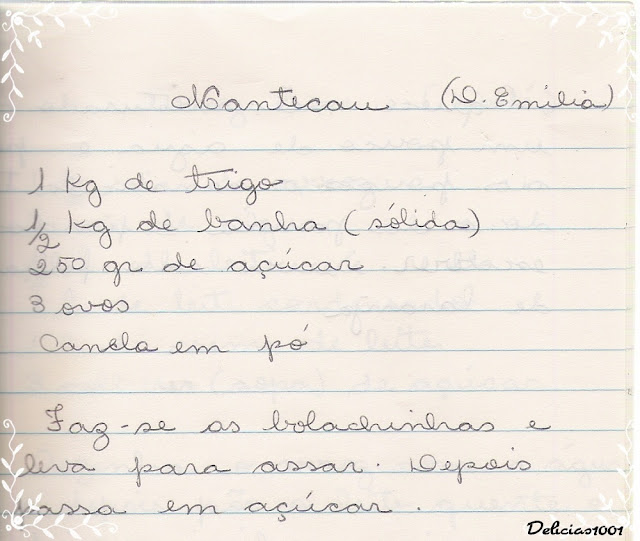 Mantecau (D. Emilia)
1 kg de trigo
1/2 kg de banha (sólida)
250 gr de açúcar
3 ovos
Canela em pó
Faz-se as bolachinhas e
leva para assar. Depois
passa em açúcar.
Delicias1001